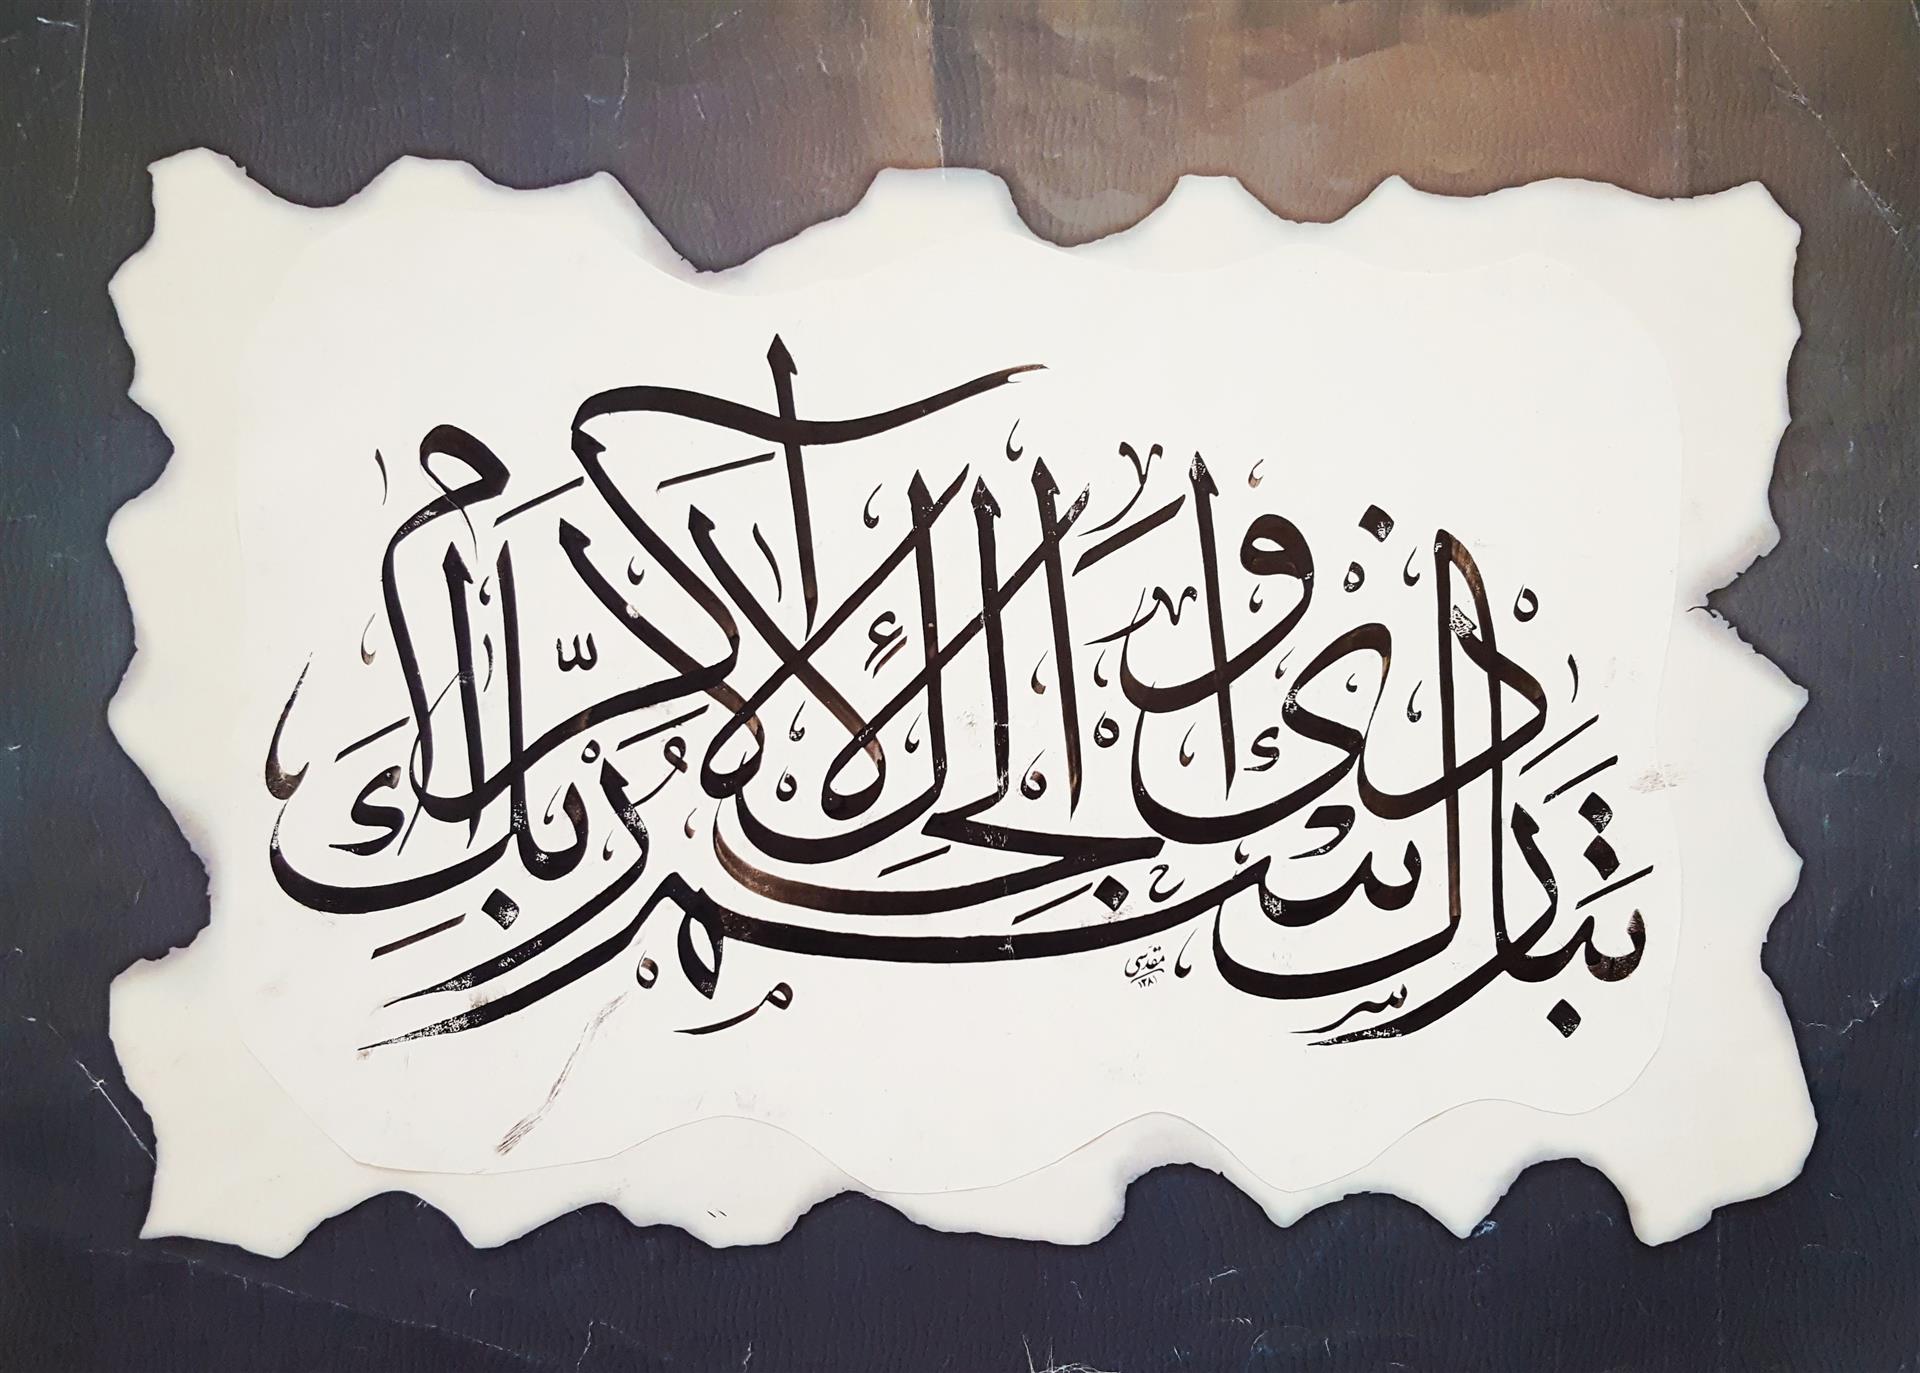 تبارك اسم ربك ذي الجلال والإكرام
مقدسی
۱۳۸۱